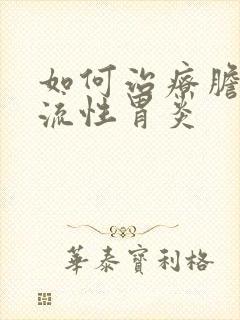 如何治療膽
流性胃炎
華泰寶利格